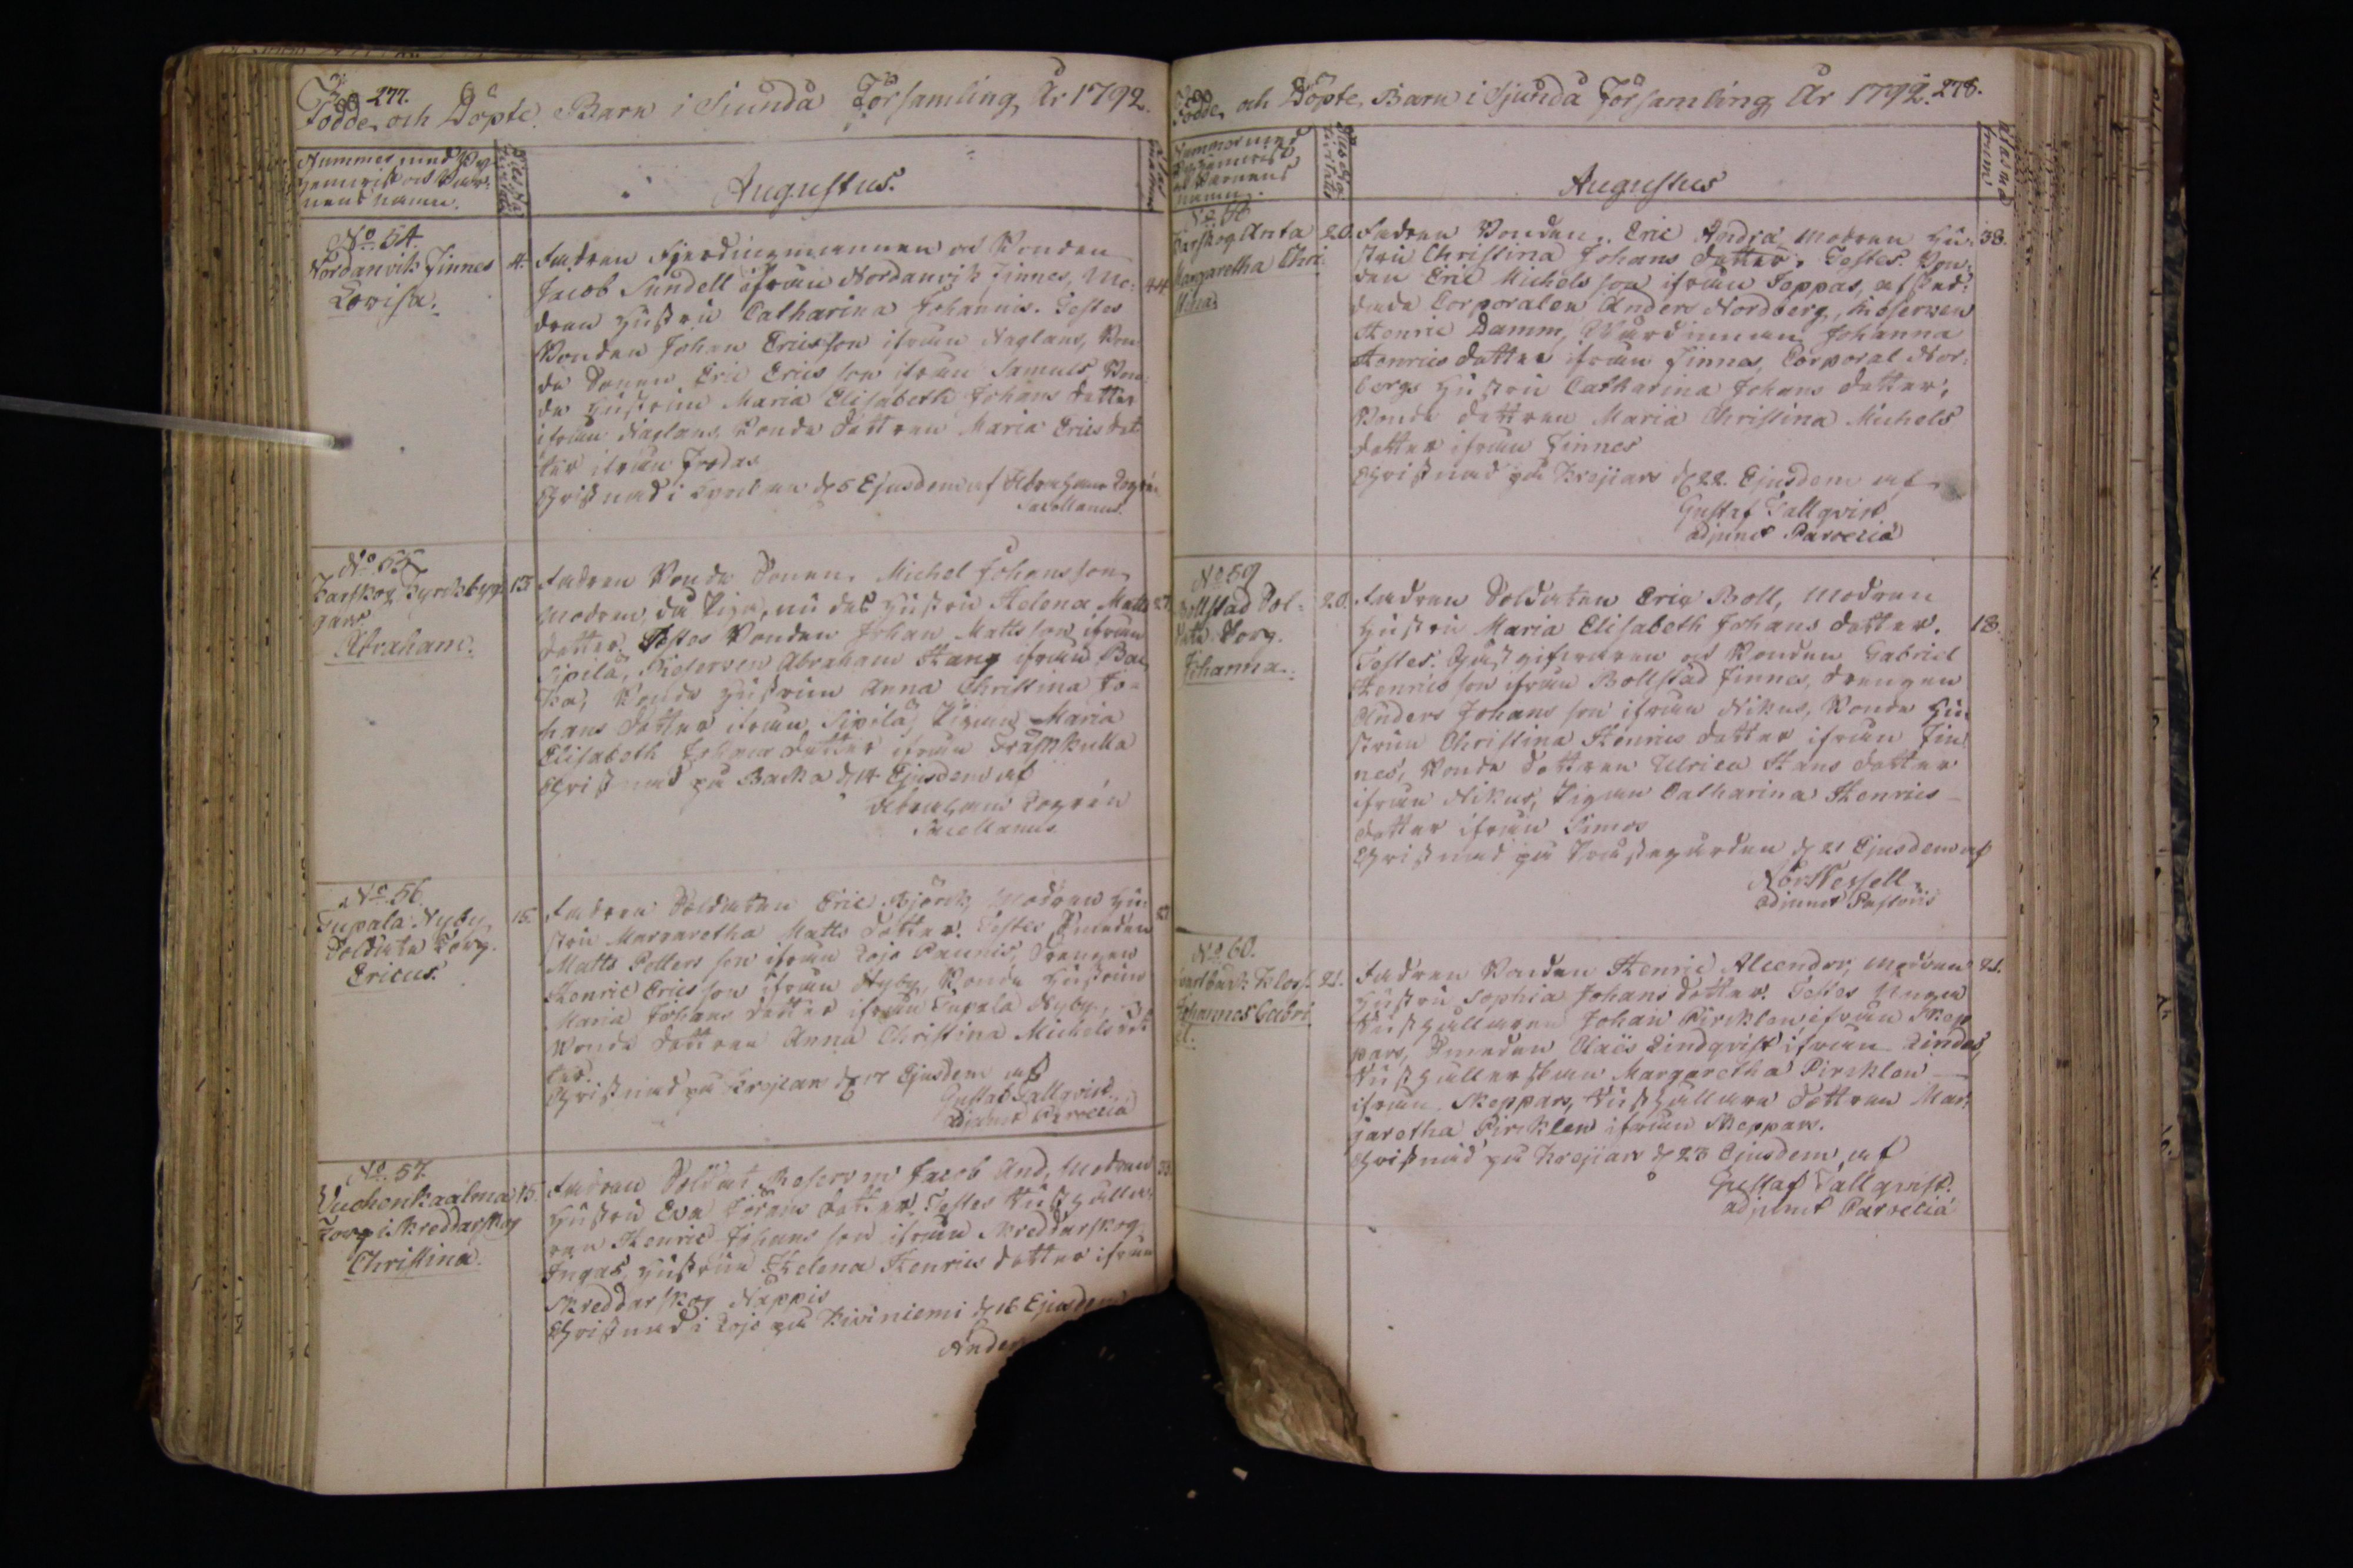 277.
Födde och Döpte Barn i Siundå Församling, År 1792.
Nummer med
nens namn.
Augustus.
No. 54.
Nordanvik Finnes
Lovisa.
4.
44
Fadren Fjerdingsmannen och Bonden
Jacob Sundell ifrån Nordanvik Finnes, Mo-
dren Hustru Catharina Johannis. Testes
Bonden Johan Ericsson ifrån Naglans, Bon
de Sonen Eric Ericsson ifrån Samuls Bon-
de Hustrun Maria Elisabeth Johans dotter
ifrån Naglans, Bonde dottren Maria Erics dot
ter ifrån Frodas
Christnad i Kyrkan d 5 Ejusdem af Abraham Logrén
Sacellanus.
No. 55
Abraham.
13.
Fadren Bonde Sonen Michel Johansson,
Modren, då Piga, nu dess Hustru Helena Matts
dotter. Testes Bonden Johan Mattsson ifrån
Sipilä, Reserven Abraham Stang ifrån Bac
ka, Bonde Hustrun Anna Christina Jo-
hans dotter ifrån Sipilä, Pigan Maria
Elisabeth Johans dotter ifrån Träskkulla
Christnad på Backa d 14 Ejusdem af
Abraham Logrén
Sacellanus
No. 56.
Nyby
Soldate Torp.
Ericus.
15.
Fadren Soldaten Eric Björck, Modren Hu-
stru Margaretha Matts dotter. Testes Smeden
Matts Petters son ifrån Lojo Paunis, Drengen
Henric Ericsson ifrån Nyby, Bonde Hustrun
Maria Johans dotter ifrån Nyby,
Bonde dottren Anna Christina Michels dot
ter.
Christnad på Krejans d 17 Ejusdem af
Gustaf Tallqvist
adjunct Paroecia
No. 57.
Torp i Skreddarskog
Christina.
15.
Fadren Soldat Reserven Jacob And, Modren
Hustru Eva Jörans dotter. Testes
ren Henric Johans son ifrån Skreddarskog
Ingas, Hustrun Helena Henrics dotter ifrån
Skreddarskog Nappis
Christnad i Lojo på Kiviniemi d 16 Ejusdem
Ander
Födde och Döpte Barn i Sjundå Församling År 1792. 278.
Nummer med
Barnens
namn.
Augustus
Margaretha Chri
stina
20.
38.
Fadren Bonden Eric Andra Modren Hu-
stru Christina Johans dotter. Testes. Bon-
den Eric Michels son ifrån Joppas, afsked-
dade Corporalen Anders Nordberg, Reserven
Henric Damm, Wärdinnan Johanna
Henrics dotter ifrån Finnes, Corporal Nor-
bergs Hustru Catharina Johans dotter,
Bonde dottren Maria Christina Michels
dotter ifrån Finnes
Christnad på Krejians d 22. Ejusdem af
Gustaf Tallqvist
adjunct Paroecia
No 59
Bollstad Sol-
date Torp.
Johanna.
20.
18.
Fadren Soldaten Eric Boll, Modren
Hustru Maria Elisabeth Johans dotter.
Testes. Gästgifvaren och Bonden Gabriel
Henrics son ifrån Bollstad Finnes, Drengen
Anders Johans son ifrån Nikus, Bonde Hu-
strun Christina Henrics dotter ifrån Fin-
nes, Bonde dottren Ulrica Hans dotter
ifrån Nikus, Pigan Catharina Henrics
dotter ifrån Simos
Christnad på Prästegården d 21 Ejusdem af
adjunct Pastoris
No 60.
Johannes Gabri
el.
21.
21.
Fadren Bonden Henric Alcendor, Modren
Hustru Sophia Johans dotter. Testes Unga
Johan Pirklen ifrån Skep
pars, Smeden Claës Lindqvist ifrån Lindes,
Margaretha Pirklen
ifrån Skeppars, dottren Mar-
garetha Pirklen ifrån Skeppars.
Christnad på Krejians d 23 Ejusdem af
Gustaf Tallqvist.
adjunct Paroecia